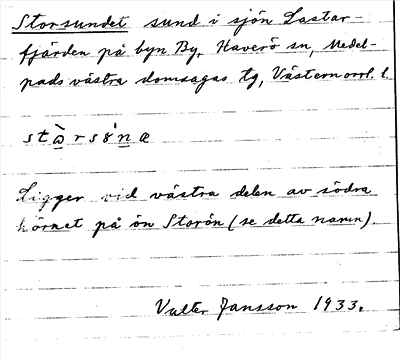 Storsundet sund i sjön Lastar-
fjärden på byn By, Haverö sn, Medel-
pads västra domsagas tg, Västernorrl. l.
Ligger vid västra delen av södra
hörnet på ön Storön (se detta namn).
Valter Jansson 1933.